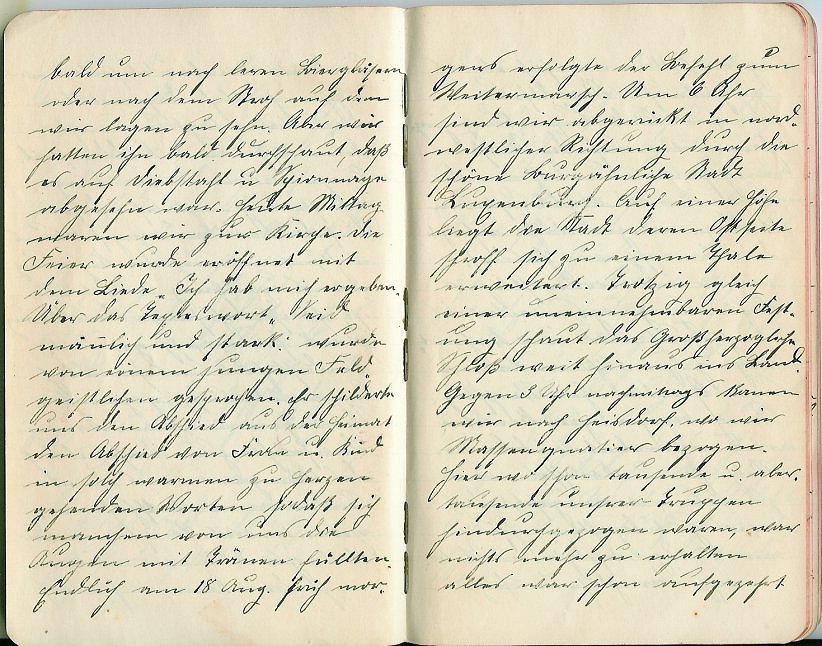 bald um nach leren Biergläsern
oder nach dem Stroh auf dem
wir lagen zu sehn. Aber wir
hatten ihn bald durchschaut, daß
es auf Diebstahl u Spionnage
abgesehn war. Heute Mittag
waren wir zur Kirche. Die
Feier wurde eröffnet mit
dem Liede „Ich hab mich ergeben.
Über das Texteswort „Seid
mänlich und stark." wurde
von einem jungen Feld-
geistlichen gesprochen. Er schilderte
uns den Abschied aus der Heimat
den Abschied von Frau u. Kind
in solch warmen zu Herzen
gehenden Worten sodaß sich
manchem von uns die
Augen mit Tränen füllten.
Endlich am 18 Aug. früh mor-
gens erfolgte der Befehl zum
Weitermarsch. Um 6 Uhr
sind wir abgerückt in nord-
westlicher Richtung durch die
schöne burgähnliche Stadt
Luxenburg. Auf einer Höhe
liegt die Stadt deren Ostseite
schroff sich zu einem Thale
erweitert. Trotzig gleich
einer uneinnehmbaren Fest-
ung schaut das Großherzogliche
Schloß weit hinaus ins Land.
Gegen 3 Uhr nachmittags kamen
wir nach Heisdorf, wo wir
Massenquatier bezogen.
Hier wo schon tausende u. aber-
tausende unsrer Truppen
hindurchgezogen waren, war
nichts mehr zu erhalten
alles war schon aufgezehrt